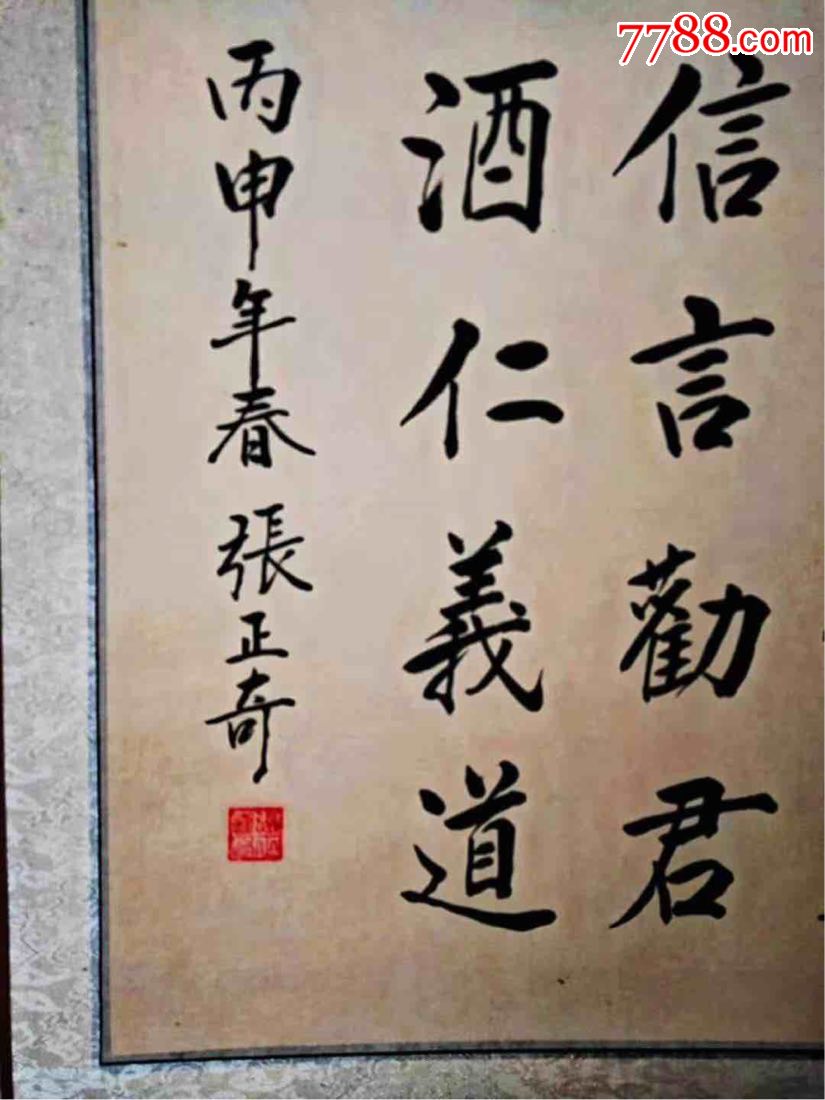 7788.com
信言勸君
酒仁義道
丙申年春 張正奇